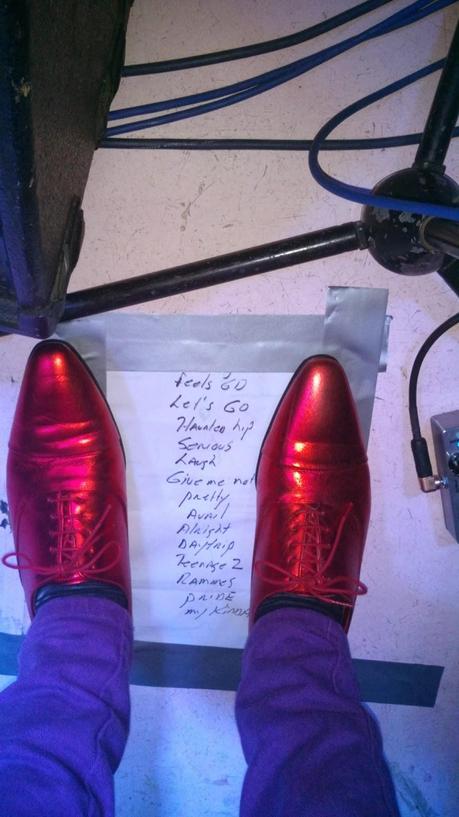 Feels GD
Let's GO
Haunted hip
Serious
Laugh
Give me not
pretty
Avril
Alright
DAYtrip
Teenage 2
Rammes
PRIDE
my KINDA